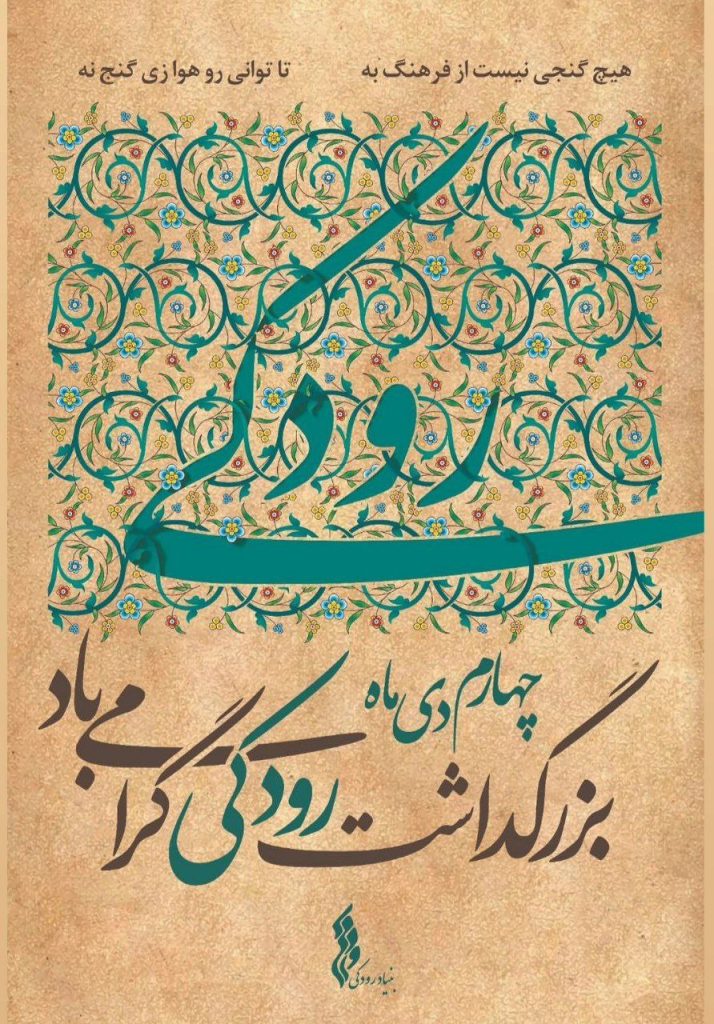 هیچ گنجی نیست از فرهنگ به    تا توانی رو هوا زی گنج نه
رودکی
چهارم دی ماه
بزرگداشت رودکی گرامی باد
بنیاد رودکی